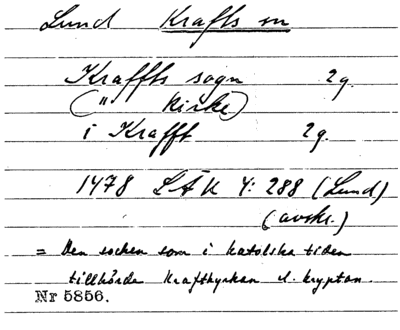 Lund Krafts sn
Kraffts sogn 2g.
(" Kirke)
i Krafft 2g.
1478 LÄU 4: 288 (Lund)
(avskr.)
= Den socken som i katolska tiden
tillhörde Krafthyrkan l. kryptan.
Nr 5856.